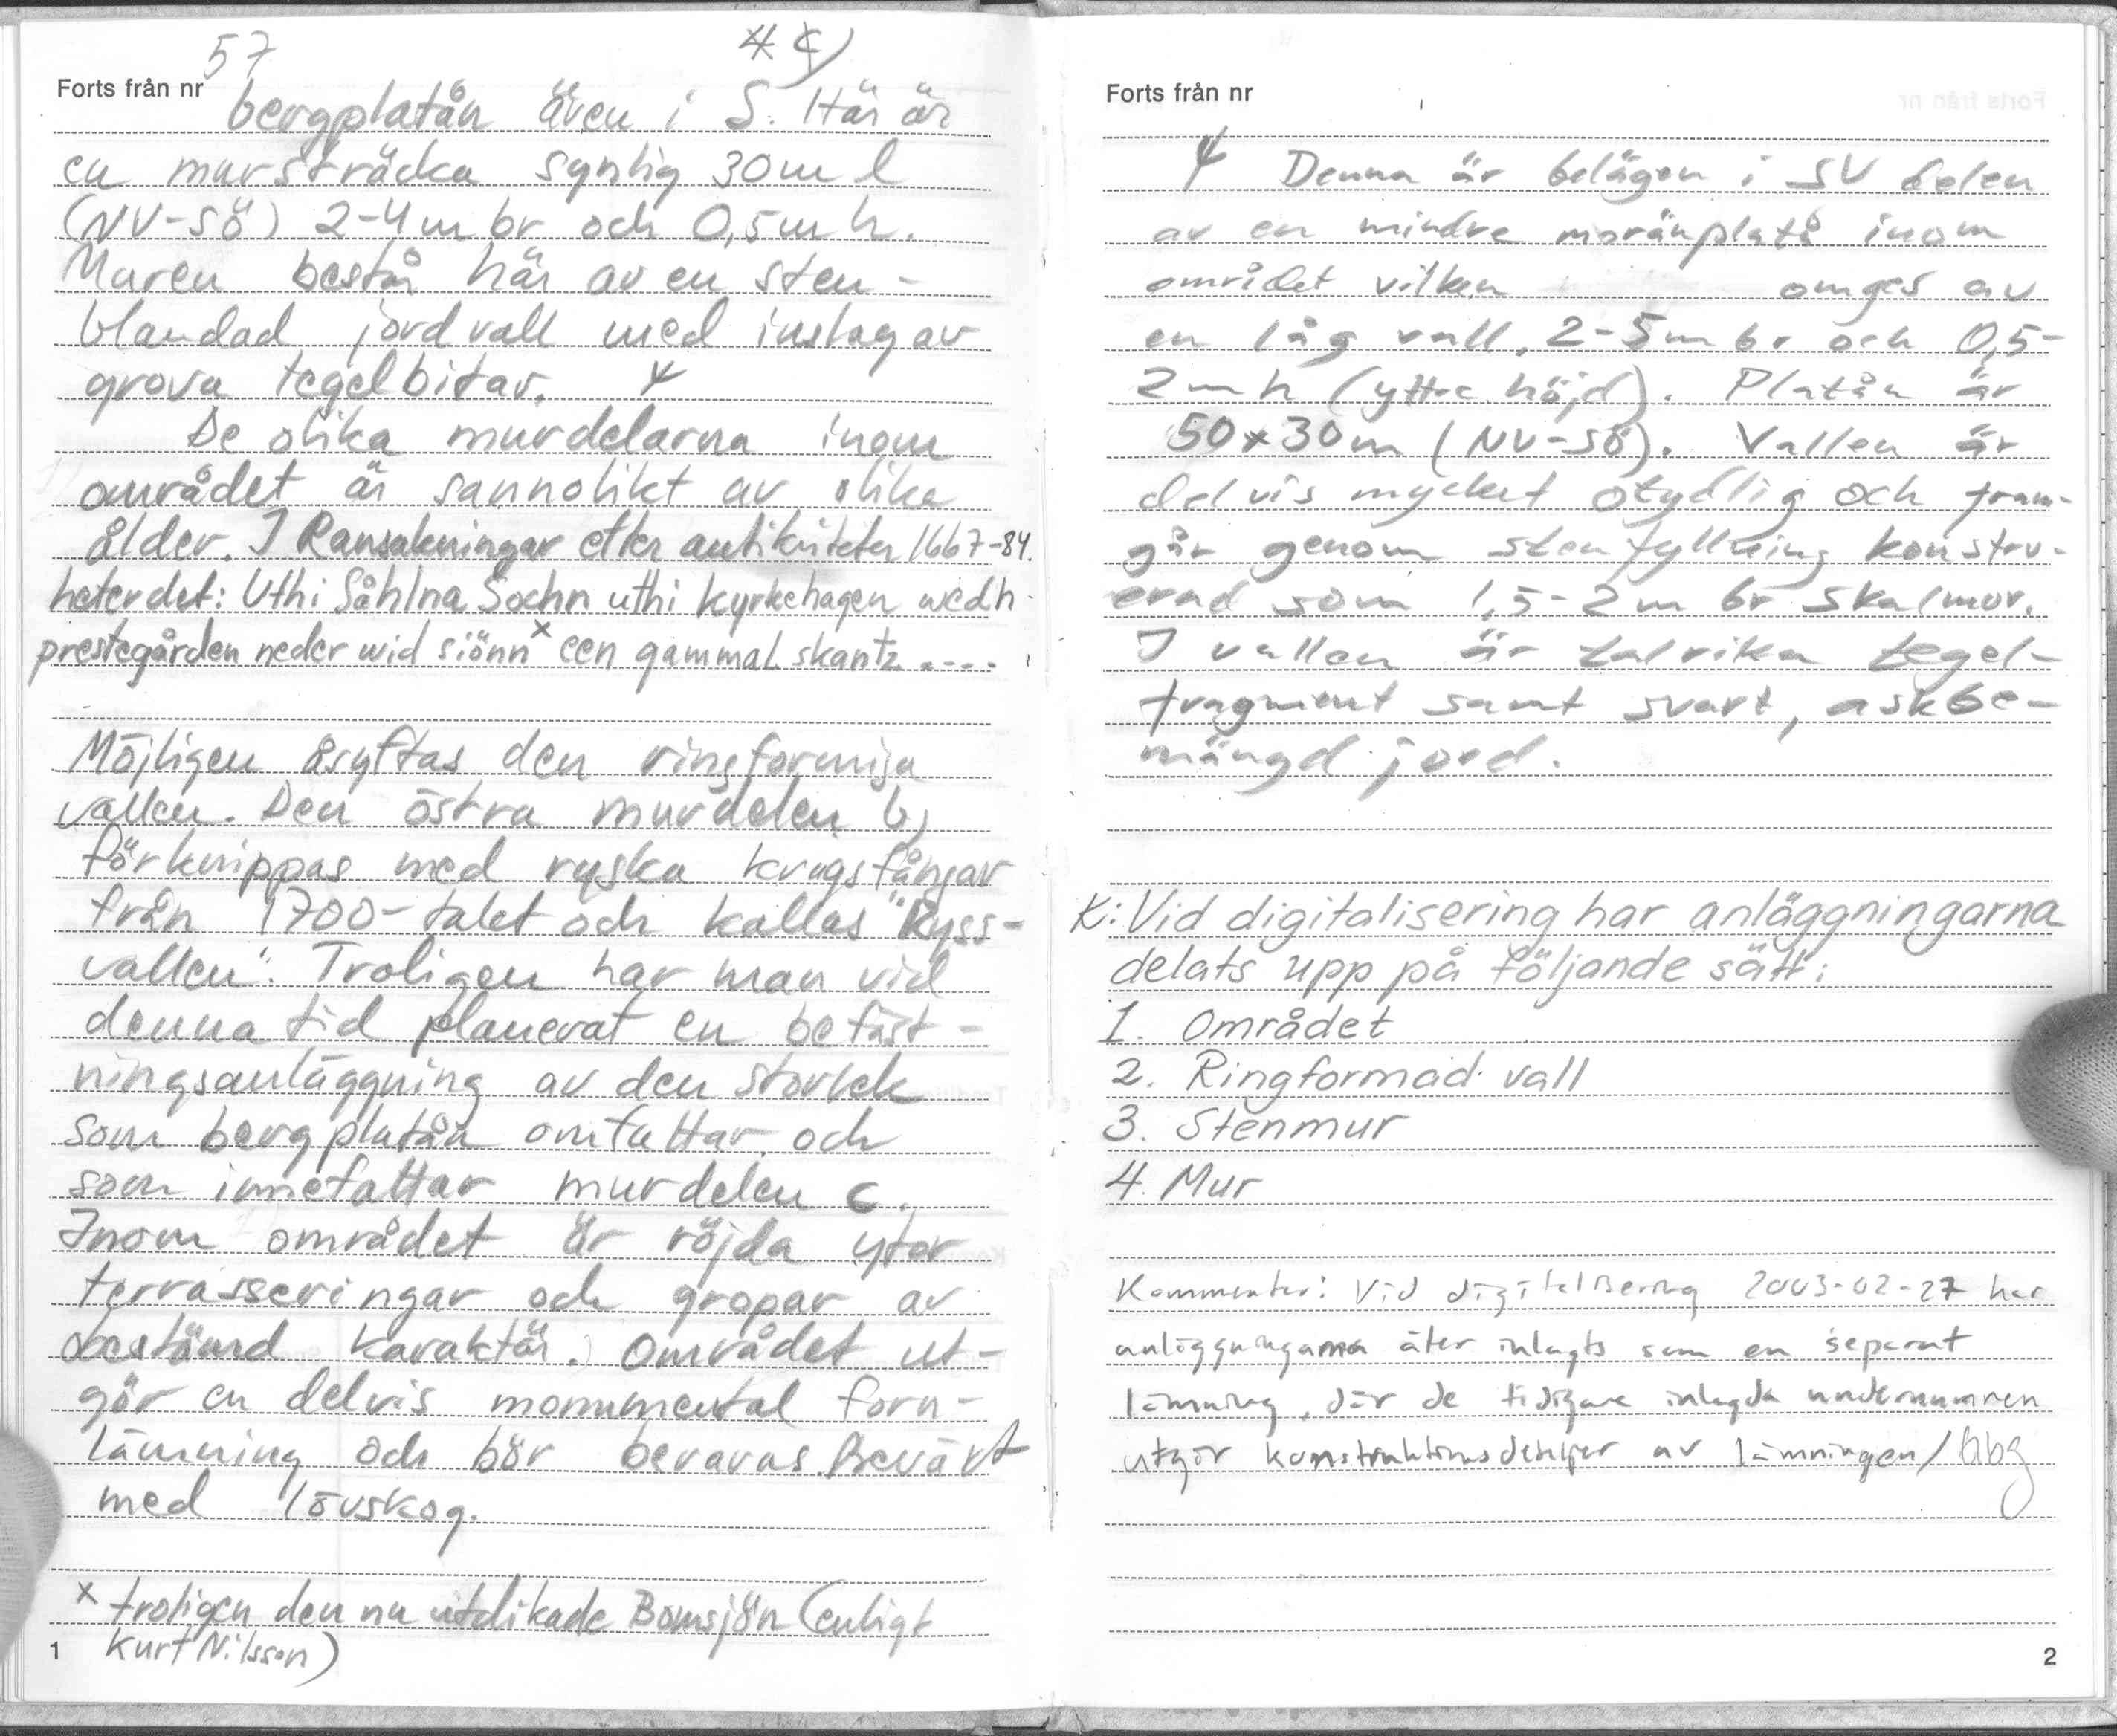 57
Forts från nr
bergplatån även i S. Här är
en mursträcka synlig 30 m l
(NV-SÖ) 2-4 m br och 0,5 m h.
Muren består här av en sten-
blandad jordvall med inslag av
grova tegelbitar. 
De olika murdelarna inom
området är sannolikt av olika
ålder. I Ransakningar efter antikviteter 1667-84.
heter det: Uthi Såhlna Sochn uthi kyrkehagen wedh
prestegården neder wid siönn x een gammal skantz ....
Möjligen åsyftas den ringformiga
vallen. Den östra murdelen b)
förknippas med ryska krigsfångar
från 1700-talet och kallas "Ryss-
vallen". Troligen har man vid
denna tid planerat en befäst-
ningsanläggning av den storlek
som bergplatån omfattar och
som innefattar murdelen c.
Inom området är röjda ytor
terrasseringar och gropar av
obestämd karaktär. Området ut-
gör en delvis monumental forn-
lämning och bör bevaras. Bevärt
med lövskog.
x troligen den nu utdikade Bomsjön (enligt
Kurt Nilsson)
1
Forts från nr
Denna är belägen i SV delen
av en mindre moränplatå inom
området vilken omges av
en låg vall, 2-5 m br och 0,5-
2 m h (yttre höjd). Platån är
50x30 m (NV-SÖ). Vallen är
delvis mycket otydlig och fram-
går genom stenfyllning konstru-
erad som 1,5-2 m br skalmur.
I vallen är talrika tegel-
fragment samt svart, askbe-
mängd jord.
K: Vid digitalisering har anläggningarna
delats upp på följande sätt:
1. Området
2. Ringformad vall
3. Stenmur
4. Mur
Kommentar: Vid digitalisering 2003-02-27 har
anläggningarna åter inlagts som en separat
lämning, där de tidigare inlagda undernumren
utgör konstruktionsdetaljer av lämningen/
2